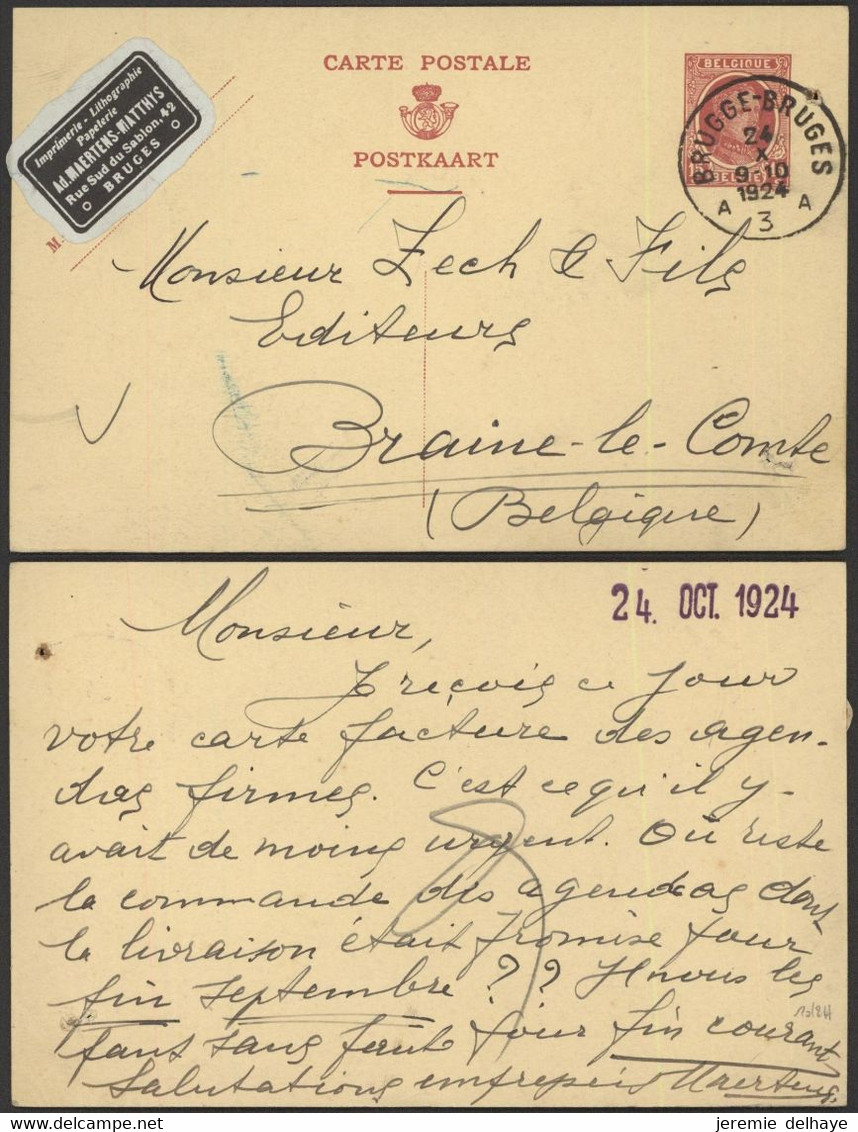 CARTE POSTALE
POSTKAART
BELGIQUE
BELGIË
BRUGGE-BRUGES
24
X
9-10
1924
A 3 A
Imprimerie - Lithographie
Papeterie
Ad. MAERTENS-MATTHYS
Rue Sud du Sablon. 42
BRUGES
M.
Monsieur Zech & Fils
Editeurs
Braine-le-Comte
(Belgique)
24. OCT. 1924
Monsieur,
Je reçois ce jour
votre carte facture des agen-
das firmes. C'est ce qu'il y
avait de moins urgent. Où reste
la commande des agendas dont
la livraison était promise pour
fin septembre ?? Il nous les
faut sans faute pour fin courant
Salutations empressées Maertens.
www.delcampe.net
jeremie delhaye